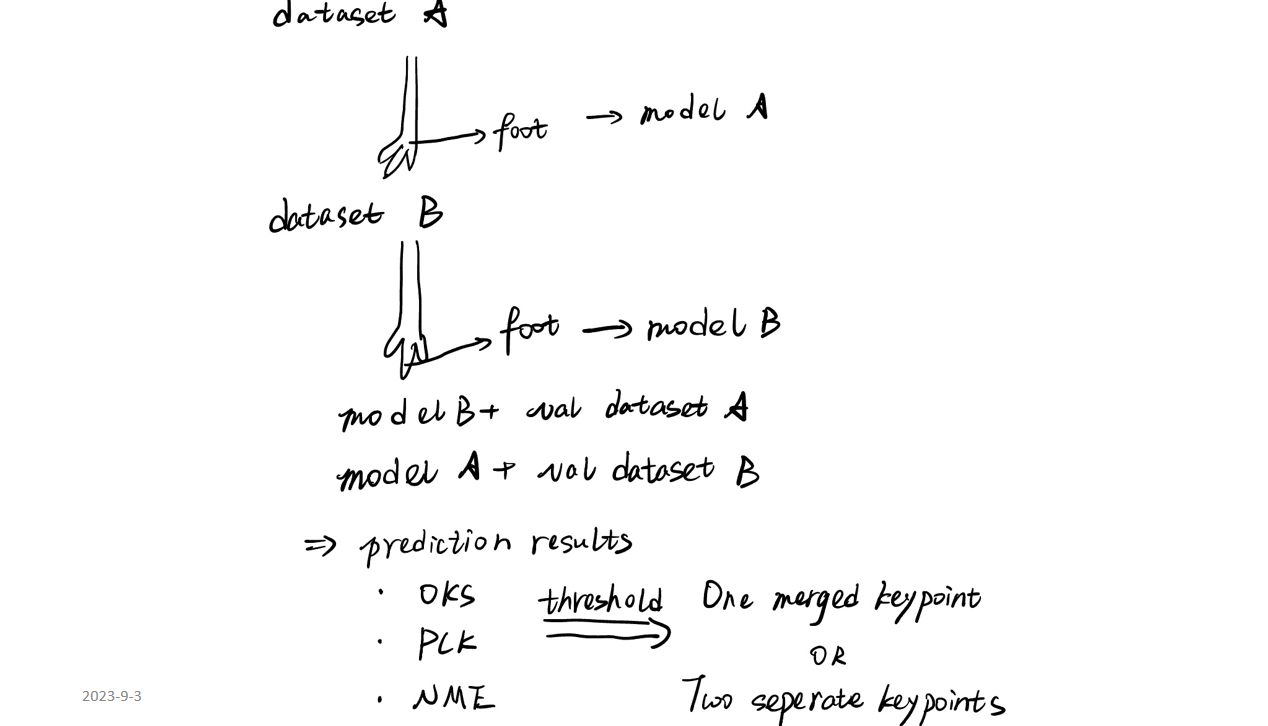 dataset A
foot → model A
dataset B
foot → model B
model B + val dataset A
model A + val dataset B
⇒ prediction results
· OKS threshold One merged keypoint
· PCK OR
· NME Two seperate keypoints
2023-9-3